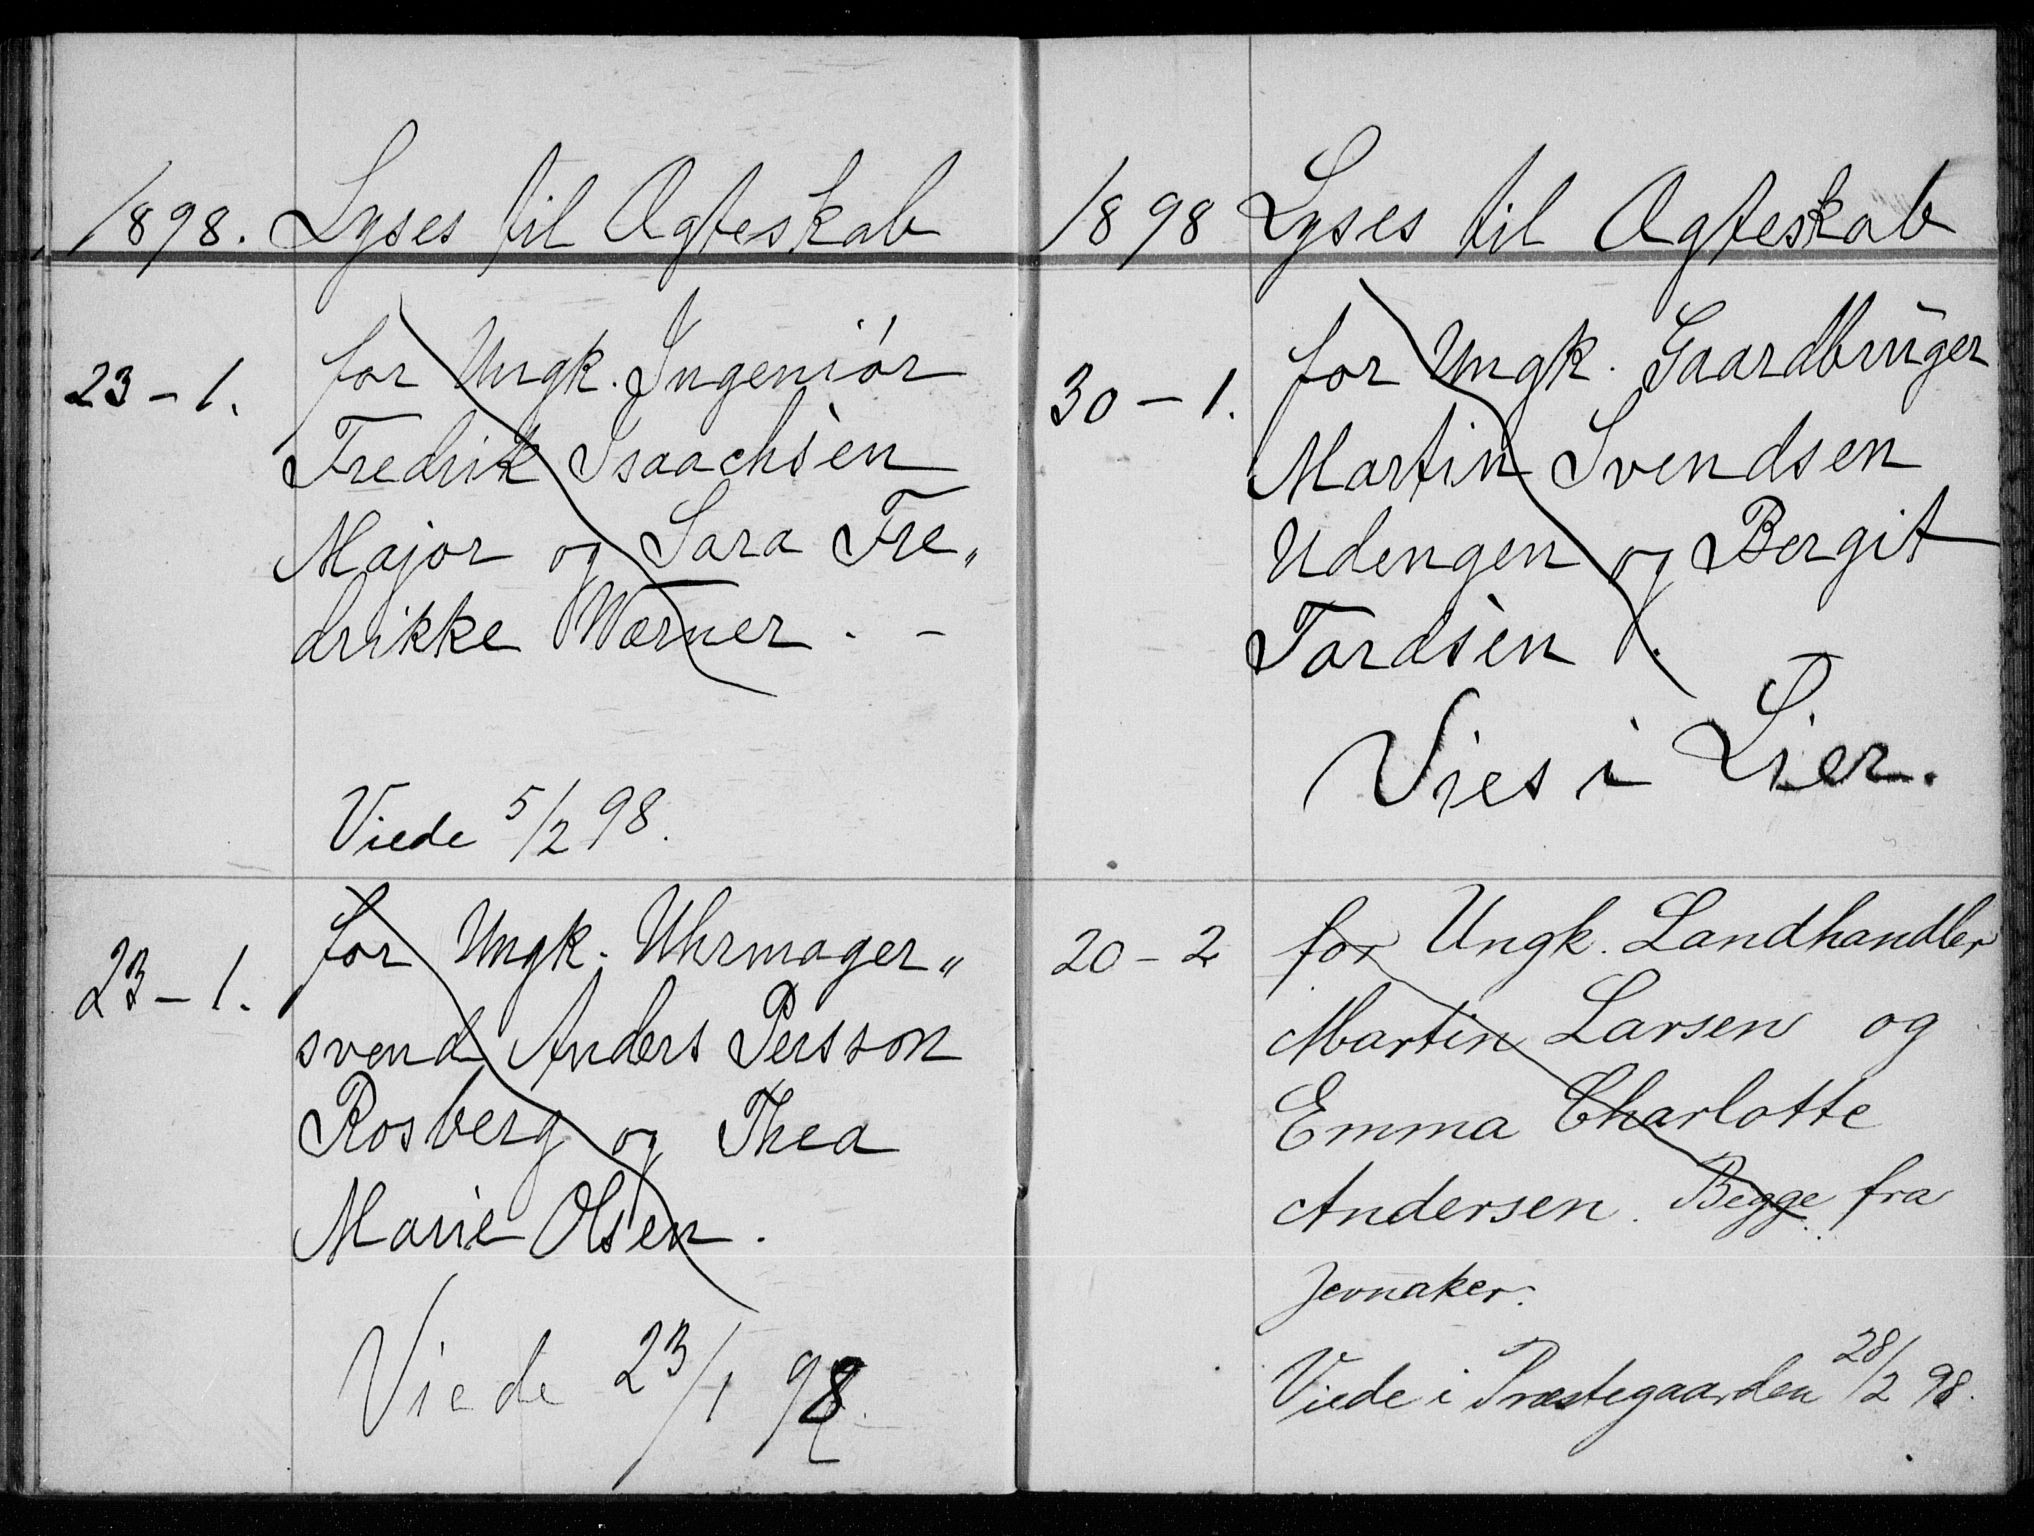 1898. Lyses til Ægteskab
23 - 1. for Ungk. Ingeniør
Fredrik Isaachsen
Major og Sara Fre„
drikke Wærner. -
Viede 5/2 98.
23 - 1. for Ungk. Uhrmager„
svend Anders Persson
Rosberg og Thea
Marie Olsen.
Viede 23/1 98.
1898 Lyses til Ægteskab
30 - 1. for Ungk. Gaardbruger
Martin Svendsen
Udengen og Bergit
Tordsen.
Vies i Lier.
20 - 2 for Ungk. Landhandler
Martin Larsen og
Emma Charlotte
Andersen. Begge fra
Jevnaker.
Viede i Præstegaarden 28/2 98.